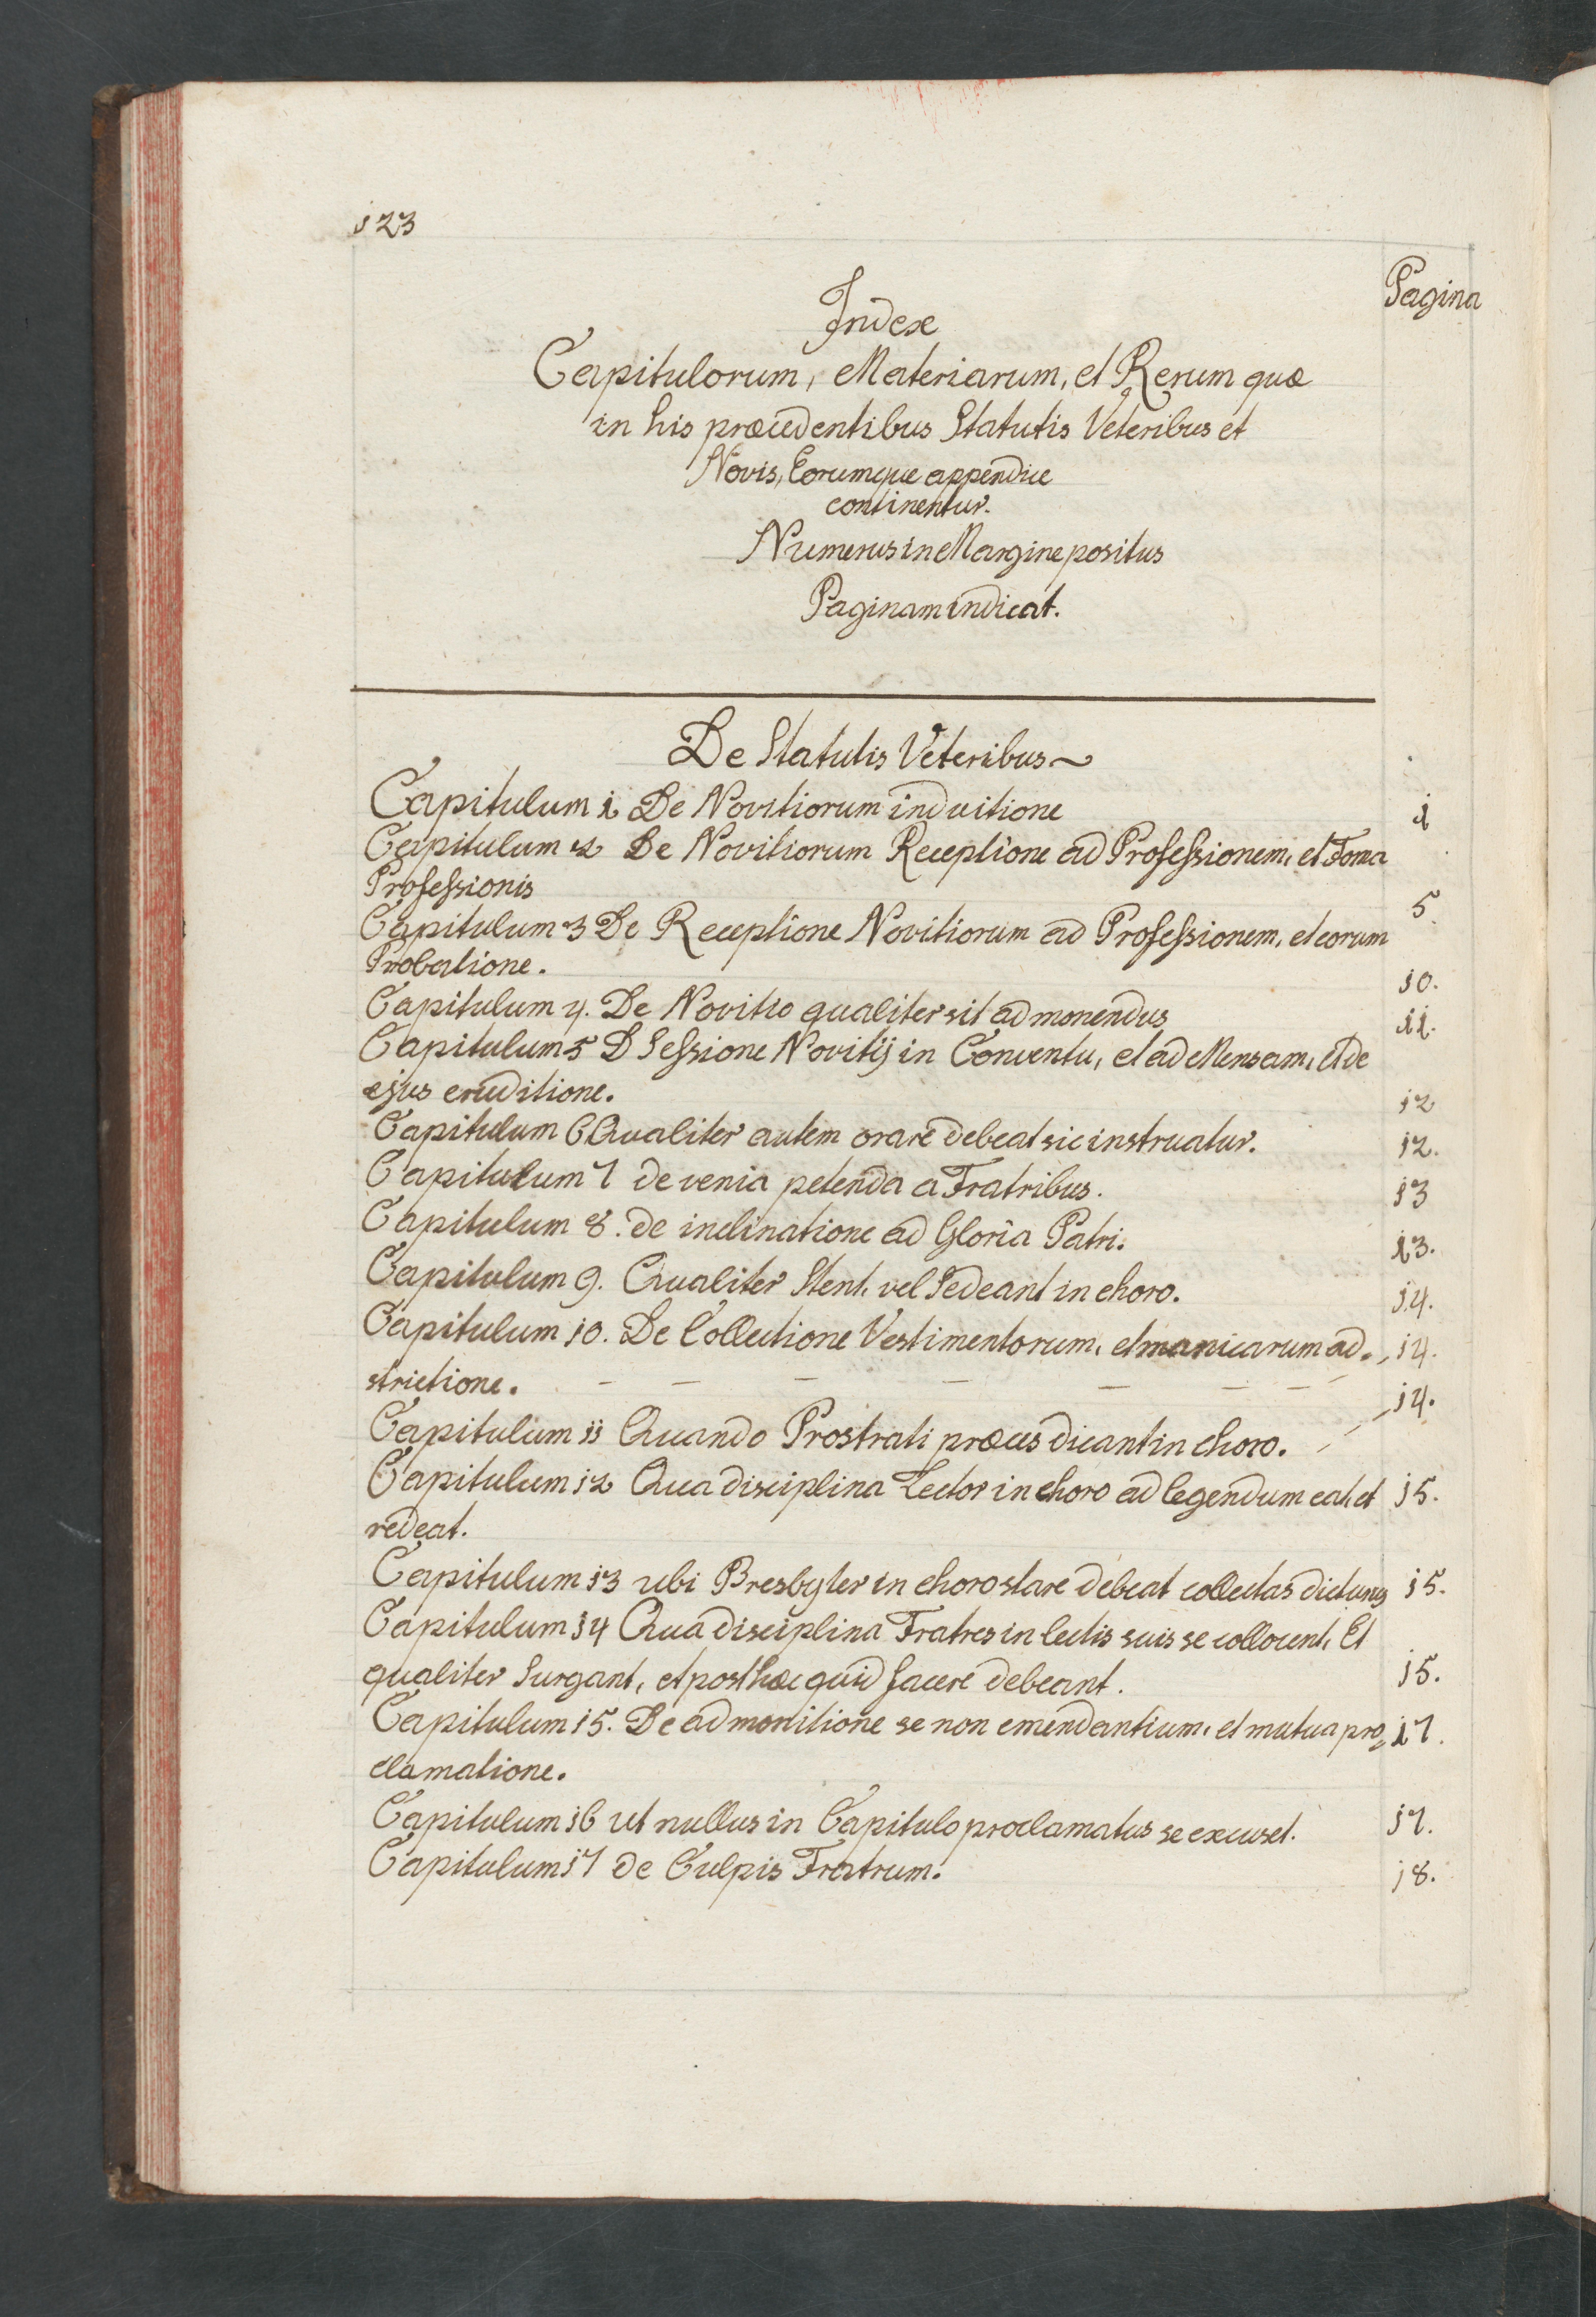 123
Pagina
Index
Capitulorum, Materiarum, et Rerum quæ
in his præcedentibus Statutis Veteribus et
Novis, Eorumque appendice
continentur.
Numerus in Margine positus
Paginam indicat.
De Statutis Veteribus~
Capitulum 1 De Novitiorum induitione 1
Capitulum 2 De Novitiorum Receptione ad Professionem, et Foma
Professionis 5.
Capitulum 3 De Receptione Novitiorum ad Professionem, et eorum
Probatione. 10.
Capitulum 4. De Novitio qualiter sit admonendus 11.
Capitulum 5 D Sessione Novitij in Conventu, et ad Mensam, et de
ejus eruditione. 12
Capitulum 6 Qualiter autem orare debeat sic instruatur. 12.
Capitulum 7 de venia petenda a Fratribus. 13
Capitulum 8. de inclinatione ad Gloria Patri. 13.
Capitulum 9. Qualiter Stent, vel Sedeant in choro. 14.
Capitulum 10. De Collectione Vestimentorum, et manicarum ad= 14.
strictione. – – – – – – – 14.
Capitulum 11 Quando Prostrati præces dicant in choro.
Capitulum 12 Qua disciplina Lector in choro ad legendum eat, et 15.
redeat.
Capitulum 13 ubi Presbyter in choro stare debeat collectas dicturus 15.
Capitulum 14 Qua disciplina Fratres in lectis suis se collocent, Et
qualiter Surgant, et post hæc quid facere debeant. 15.
Capitulum 15. De admonitione se non emendantium, et mutua pro= 17.
clamatione.
Capitulum 16 ut nullus in Capitulo proclamatus se excuset. 17.
Capitulum 17 de Culpis Fratrum. 18.